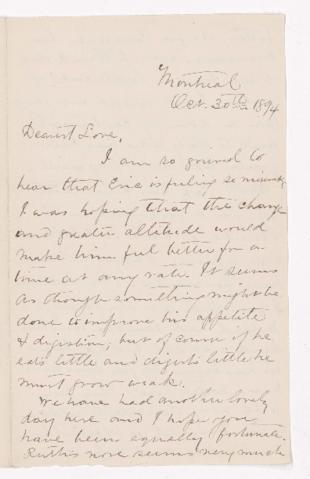 Montreal
Oct. 30th 1894
Dearest Love,
I am so grieved to
hear that Eric is feeling so miserably
I was hoping that the change
and greater altitude would
make him feel better for a
time at any rate. It seems
as though something might be
done to improve his appetite
& digestion; but of course if he
eats little and digests little he
must grow weak.
We have had another lovely
day here and I hope you
have been equally fortunate.
Ruth's nose seems very much